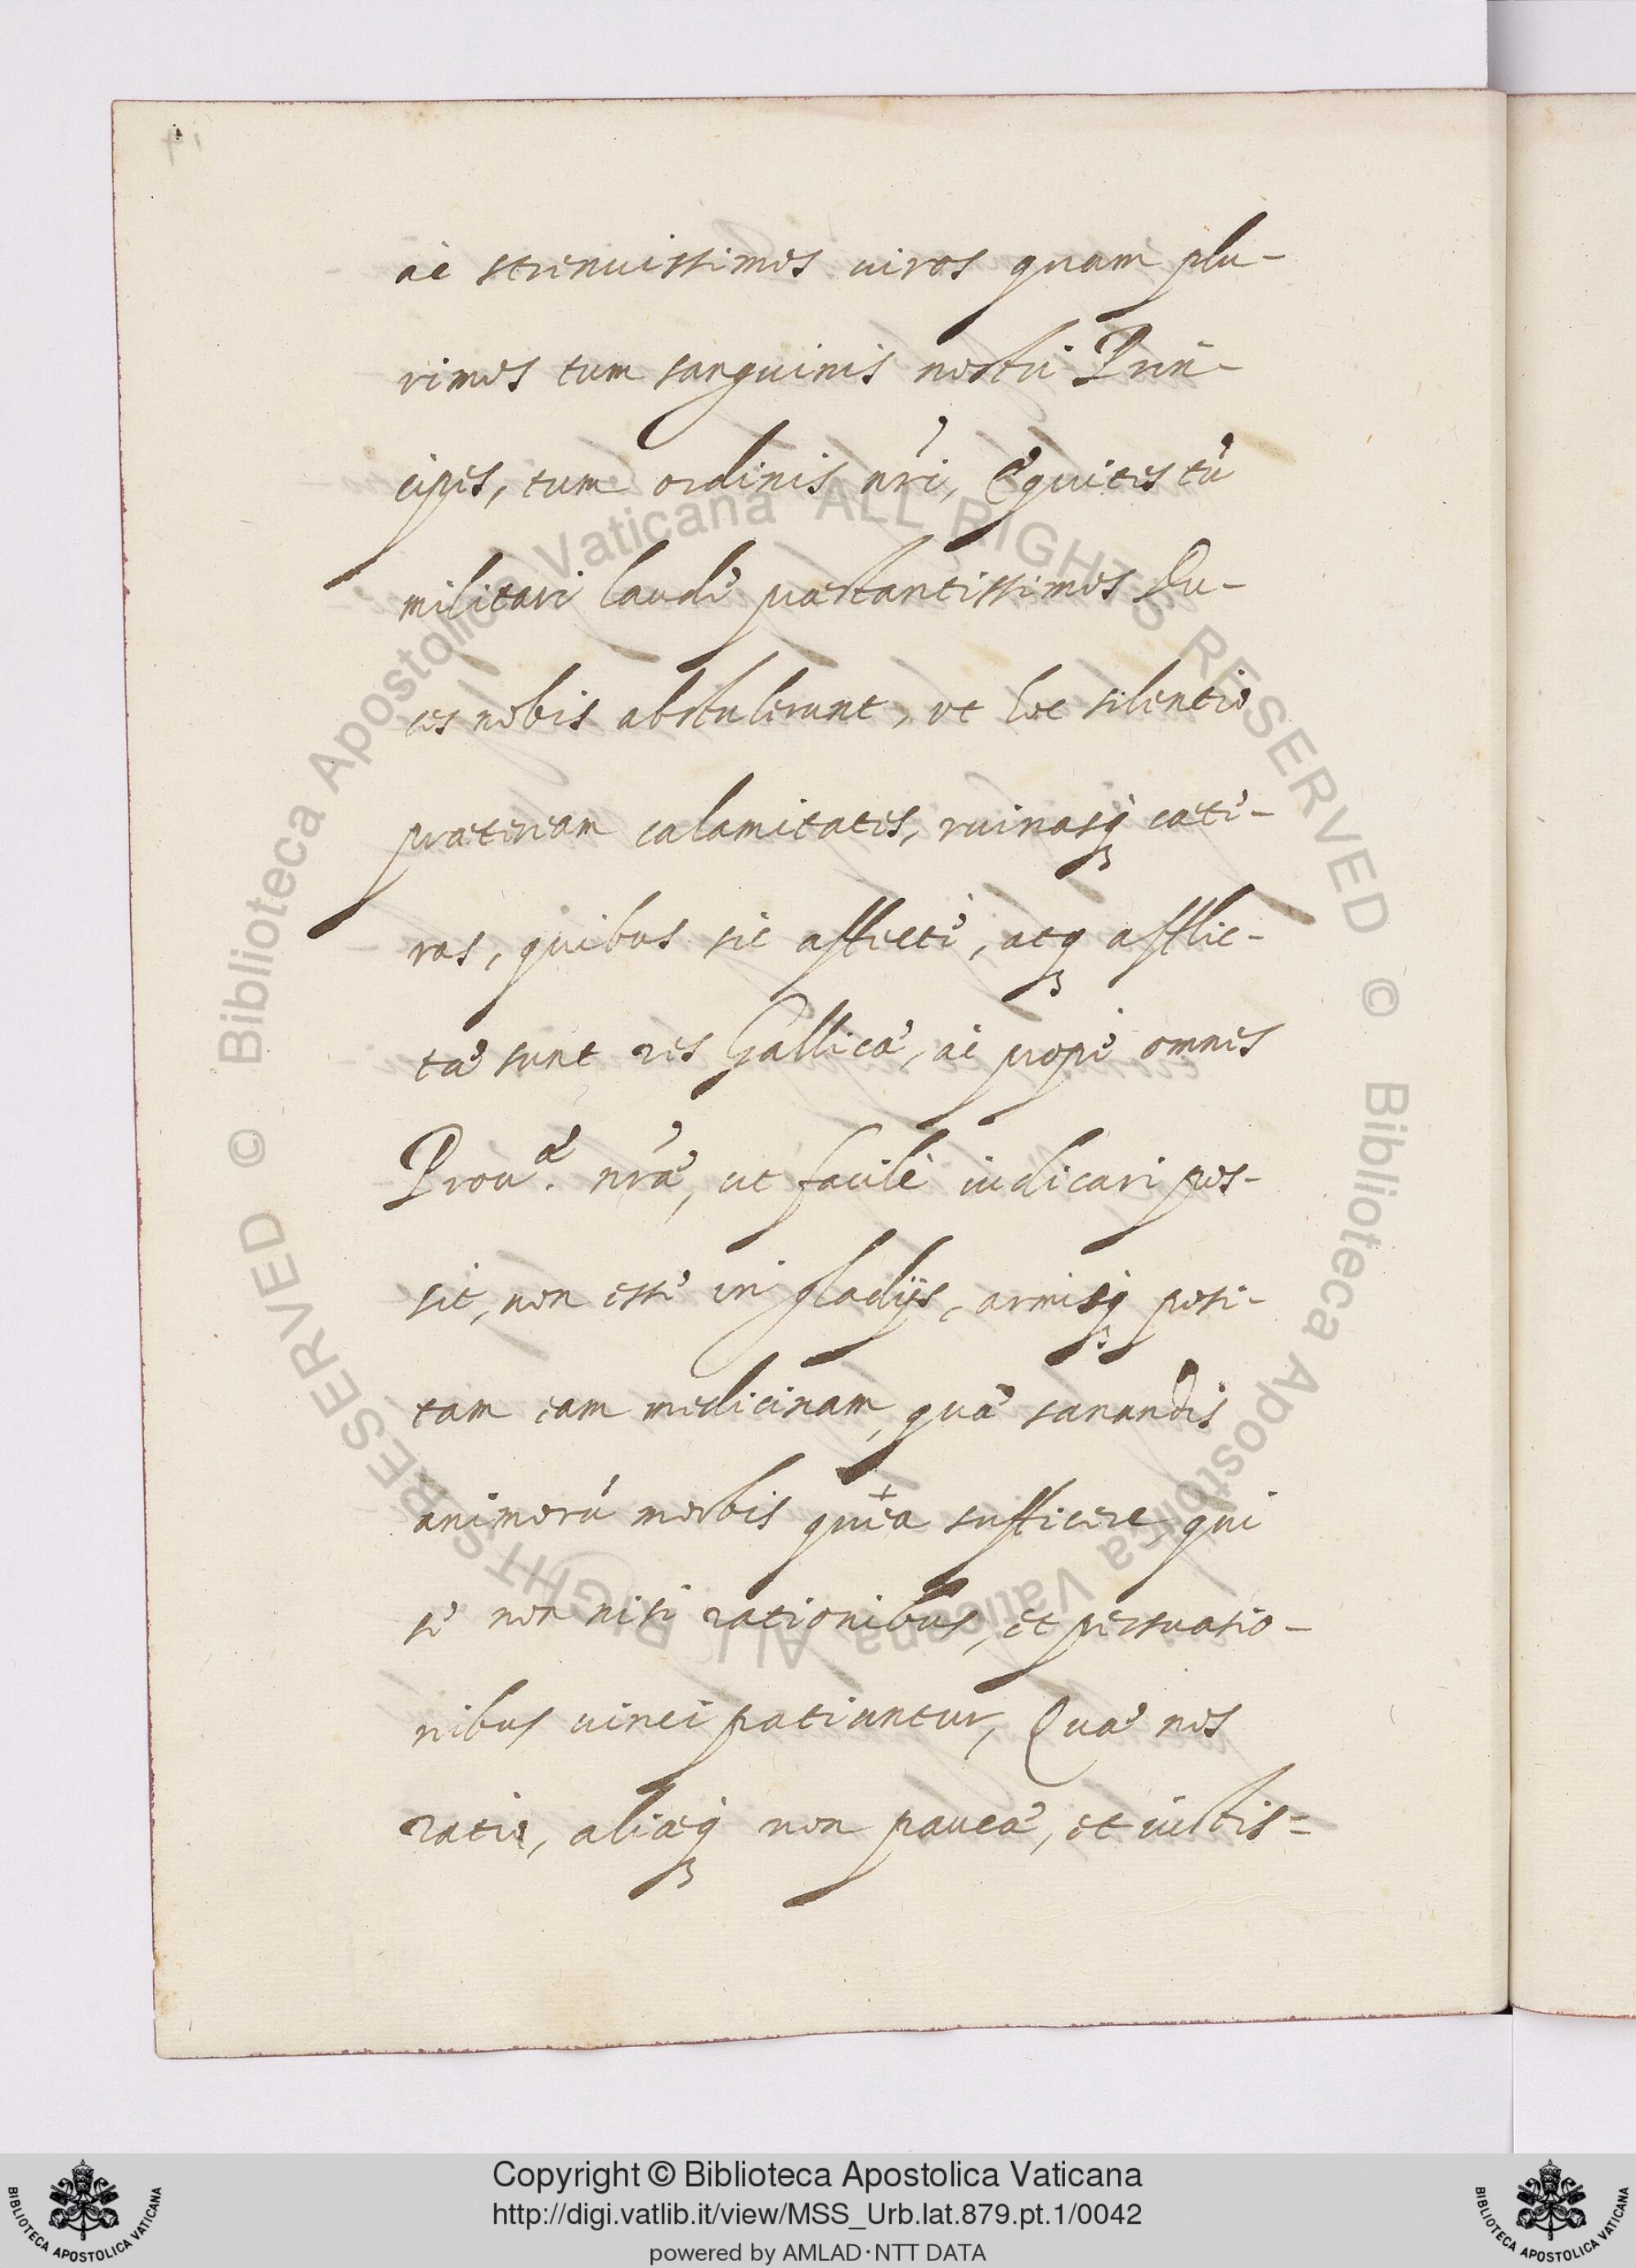 ac strenuissimos uiros quam plu-
rimos tum sanguinis nostri Prin-
cipes, tum ordinis nr̃i, Equites tũ
militari laude præstantissimos Du-
ces nobis abstulerunt, ut hoc silentio
præteream calamitates, ruinasq; cæte-
ras, quibus sic affectæ, atq; afflic-
tæ sunt res Gallicæ, ac propè omnes
Prouæ. nr̃æ, ut facilè iudicari pos-
sit, non esse in gladijs, armisq; posi-
tam eam medicinam, quæ sanandis
animorũ morbis sufficere, qui
se non nisi rationibus, et persuasio-
nibus uinci patiuntur, Quæ nos
ratio, aliæq; non paucæ, et iustis-
Biblioteca Apostolica Vaticana ALL RIGHTS RESERVED ©
Biblioteca Apostolica Vaticana ALL RIGHTS RESERVED ©
Copyright © Biblioteca Apostolica Vaticana
http://digi.vatlib.it/view/MSS_Urb.lat.879.pt.1/0042
powered by AMLAD·NTT DATA
BIBLIOTECA APOSTOLICA VATICANA
BIBLIOTECA APOSTOLICA VATICANA